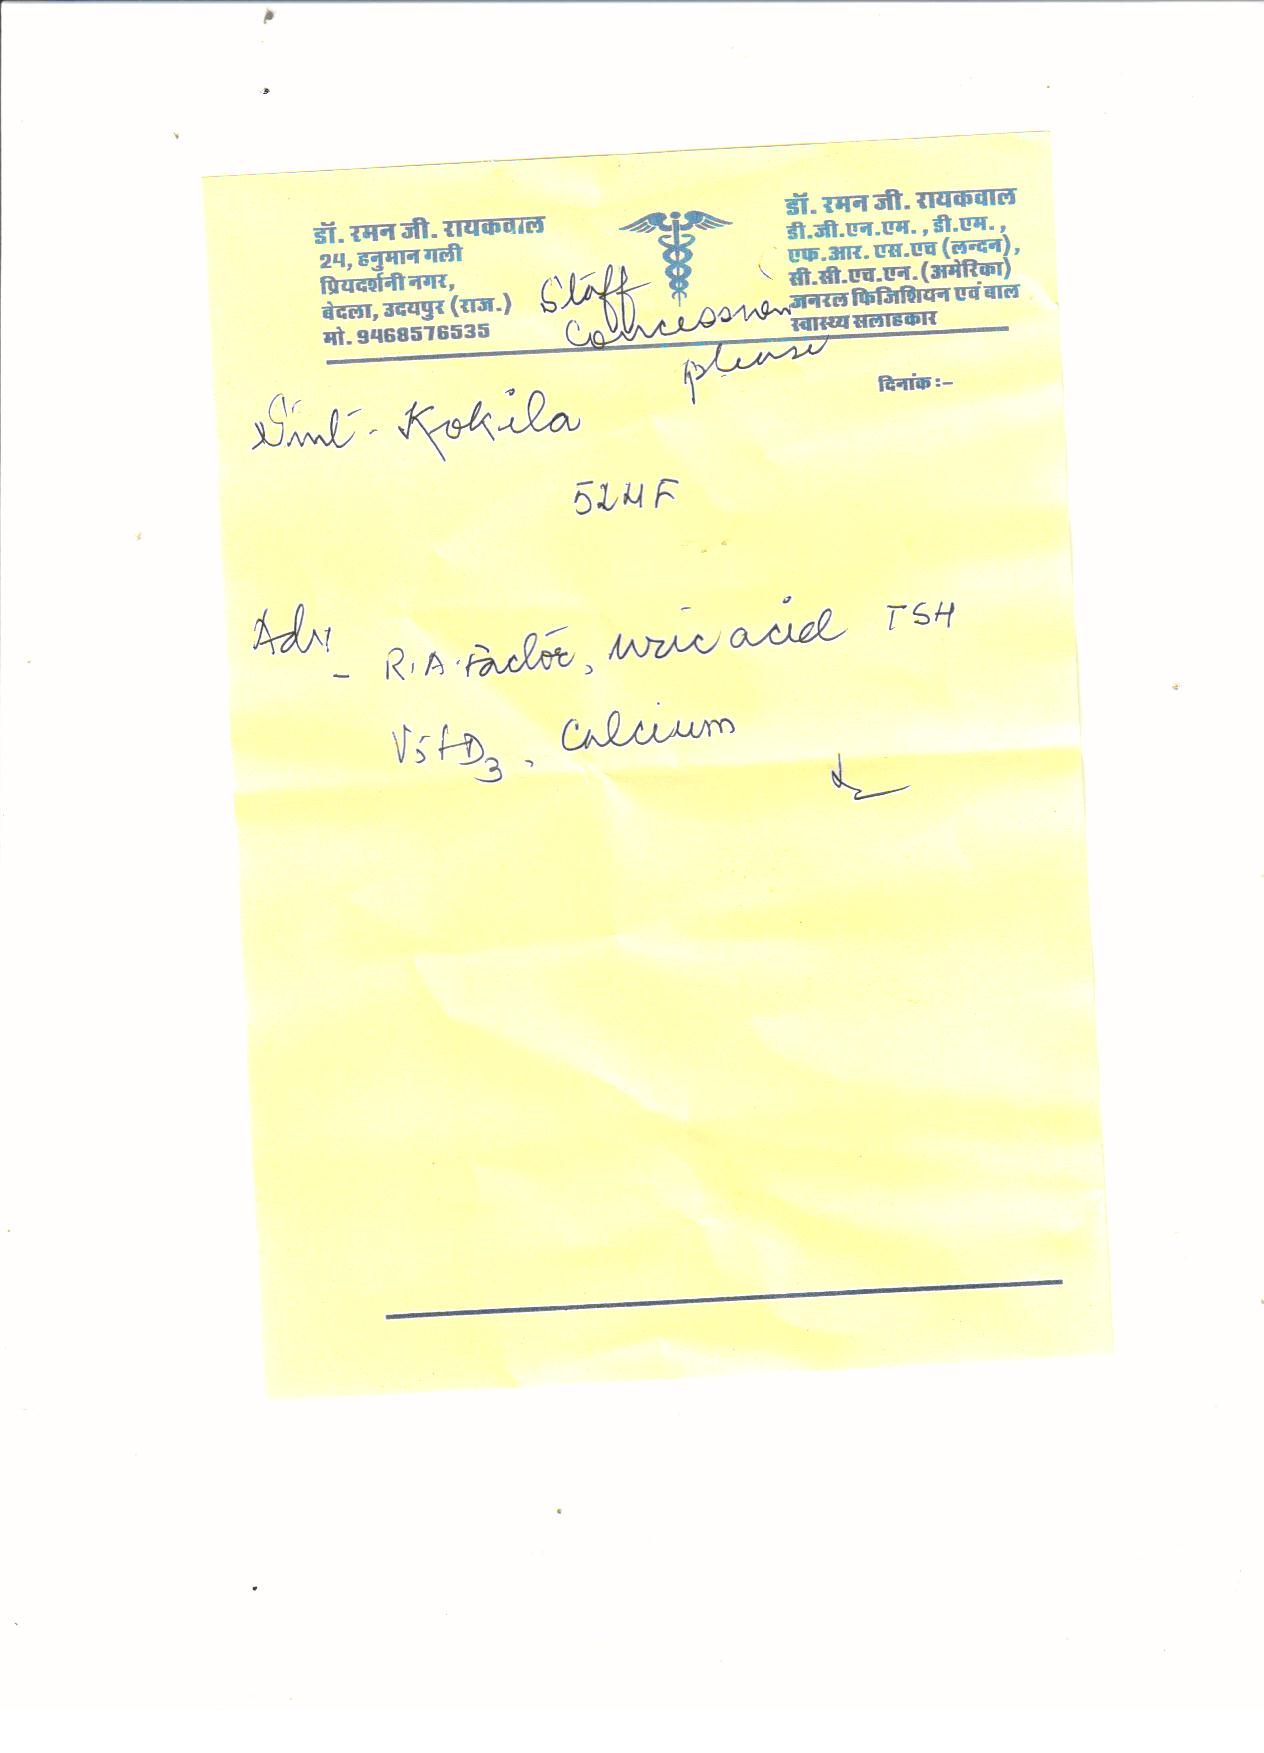 डॉ. रमन जी. रायकवाल
24, हनुमान गली
प्रियदर्शनी नगर,
बेदला, उदयपुर (राज.)
मो. 9468576535
डॉ. रमन जी. रायकवाल
डी.जी.एन.एम., डी.एम.,
एफ.आर. एस.एच (लन्दन),
सी.सी.एच.एन. (अमेरिका)
जनरल फिजिशियन एवं बाल
स्वास्थ्य सलाहकार
Staff
Concession
please
दिनांक :–
Smt - Kokila
52 F
Adv - R.A. Factor, uric acid TSH
Vit D3, Calcium